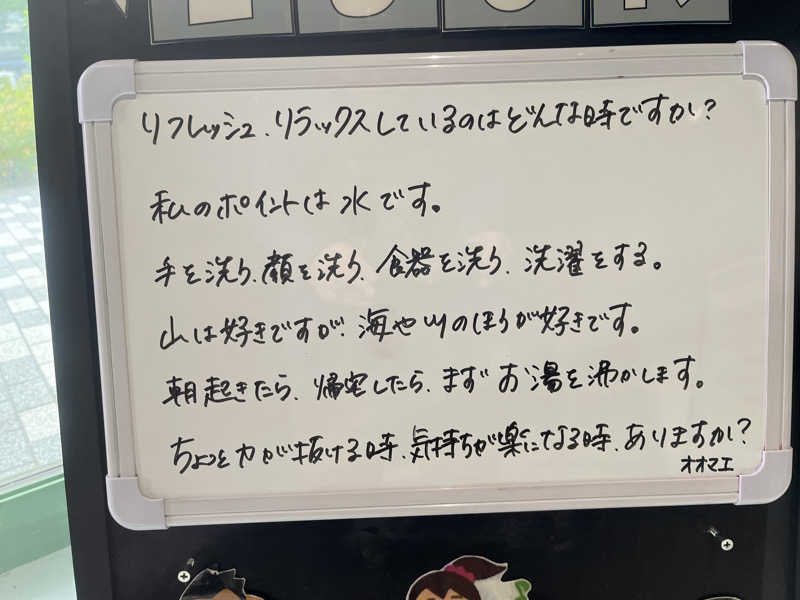 リフレッシュ、リラックスしているのはどんな時ですか?
私のポイントは水です。
手を洗う、顔を洗う、食器を洗う、洗濯をする。
山は好きですが、海や川のほうが好きです。
朝起きたら、帰宅したら、まずお湯を沸かします。
ちょっと力が抜ける時、気持ちが楽になる時、ありますか?
オオマエ